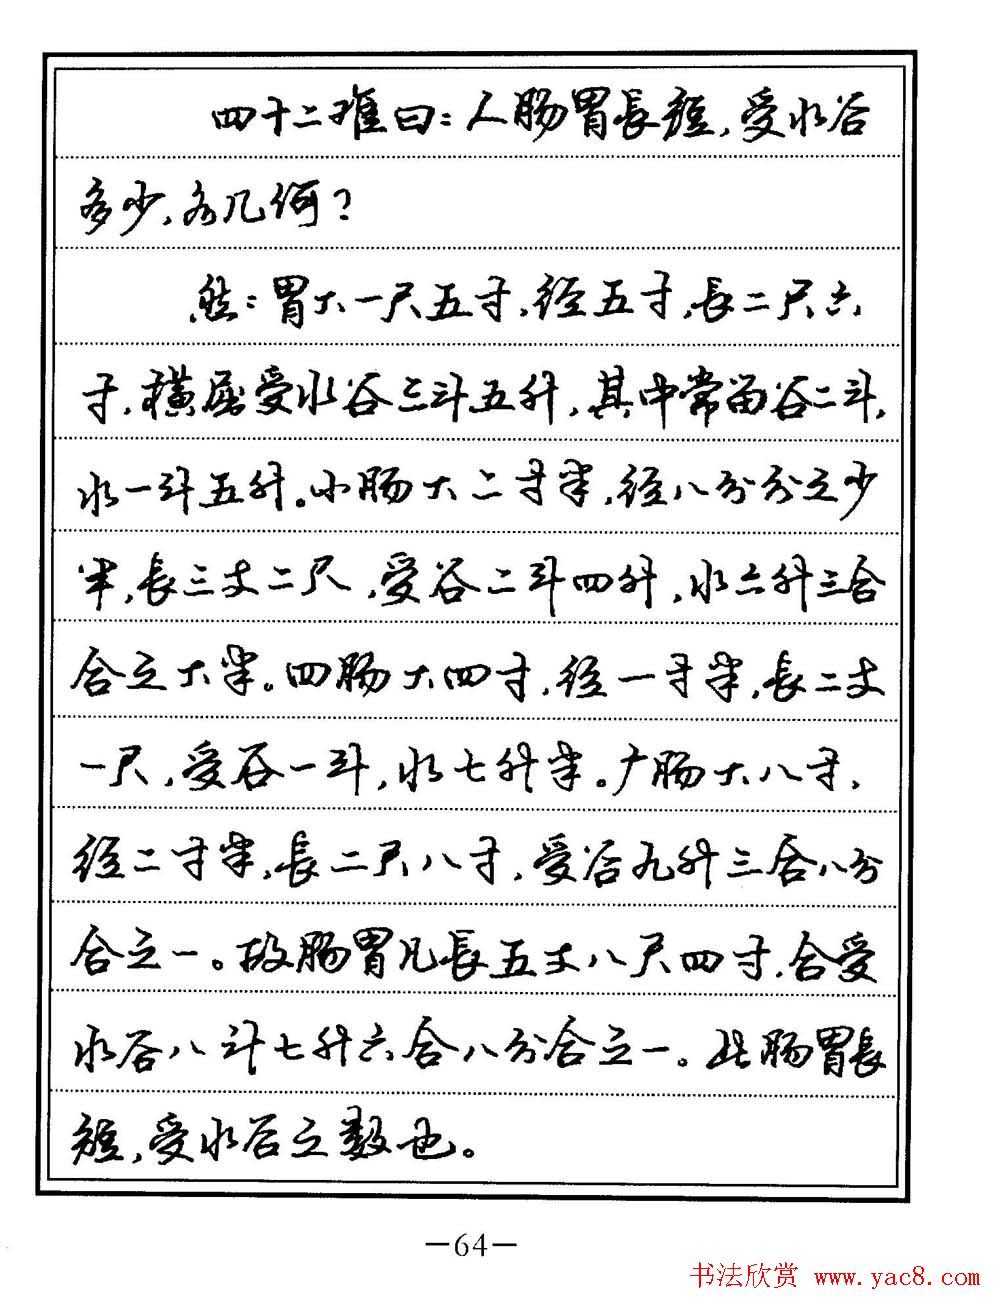 四十二难曰：人肠胃長短，受水谷
多少，各几何？
然：胃大一尺五寸，径五寸，長二尺六
寸，横屈受水谷三斗五升，其中常留谷二斗，
水一斗五升。小肠大二寸半，径八分分之少
半，長三丈二尺，受谷二斗四升，水六升三合
合之大半。四肠大四寸，径一寸半，長二丈
一尺，受谷一斗，水七升半。广肠大八寸，
径二寸半，長二尺八寸，受谷九升三合八分
合之一。故肠胃凡長五丈八尺四寸，合受
水谷八斗七升六合八分合之一。此肠胃長
短，受水谷之数也。
—64—
书法欣赏 www.yac8.com